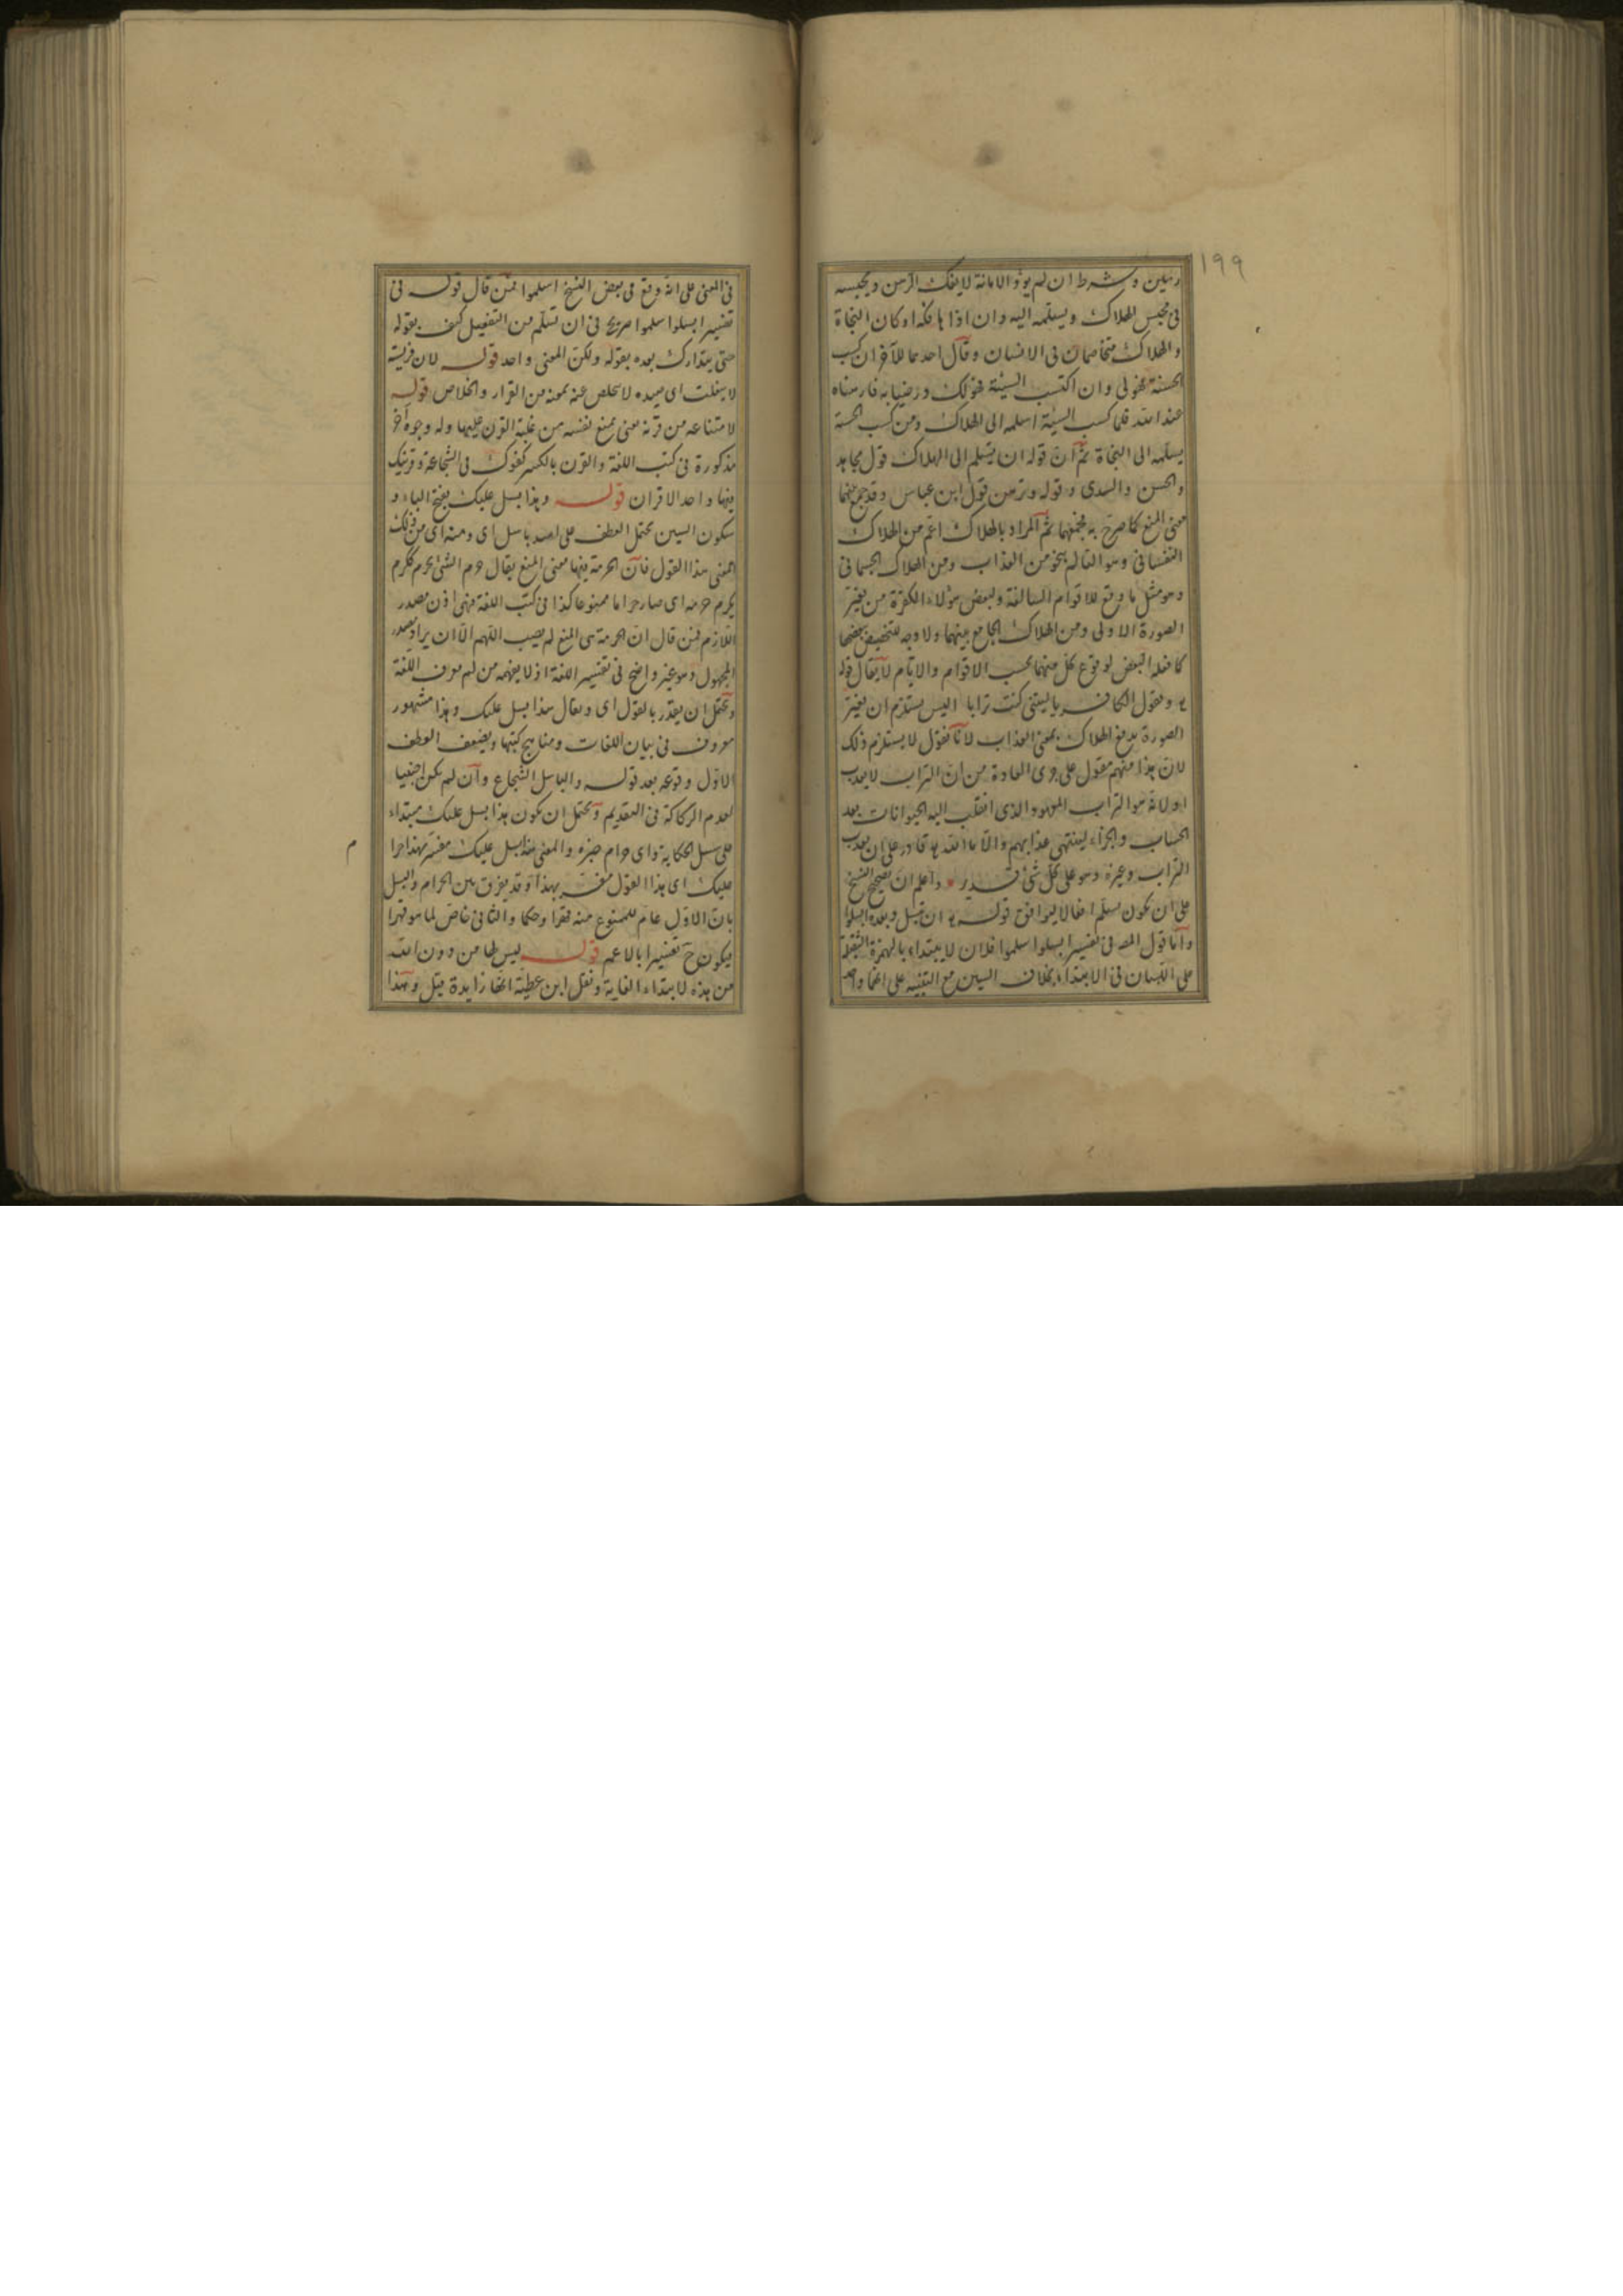 ١٩٩
رهين وشرط ان لم يؤد الامانة لا يفك الرهن ويحبسه
فى محبس الهلاك ويسلمه اليه وان اذا ها فكه او كان النجاة
والهلاك متخاصمان فى الانسان وقال احدهما للآخر ان كسب
الحسنة فهو لى وان اكتسب السيئة فهو لك ورضيا به فارهناه
عند الله فلما كسب السيئة اسلمه الى الهلاك ومن كسب الحسنة
يسلمه الى النجاة ثم ان قوله ان تسلم الى الهلاك قول مجاهد
والحسن والسدى وقوله وترهن قول ابن عباس وقد جمع بينهما
معنى المنع كما صرح به ثم المراد بالهلاك اعم من الهلاك
النفسانى وهو التألم بنحو من العذاب ومن الهلاك الجسمانى
وهو مثل ما وقع للاقوام السالفة ولبعض هؤلاء الكفرة من تغير
الصورة الاولى ومن الهلاك الجامع بينهما ولا وجه للتخصيص ببعضها
كما فعله البعض لوقوع كل منهما بحسب الاقوام والايام لا يقال قوله
تع ويقول الكافر يا ليتنى كنت ترابا اليس يستلزم ان تغير
الصورة يدفع الهلاك بمعنى العذاب لانا نقول لا يستلزم ذلك
لان هذا منهم مقول على جرى العادة من ان التراب لا يعذب
او لانه هو التراب المعهود الذى انقلب اليه الحيوانات بعد
الحساب والجزاء لينتهى عذابهم والا فالله تع قادر على ان يعذب
التراب وغيره وهو على كل شئ قدير واعلم ان تصحيح النسخ
على ان يكون تسلم افعالا ليوافق قوله تع ان تبسل وبعده ابسلوا
واما قول المص فى تفسير ابسلوا اسلموا فلان لا يبتداء بالهمزة الثقيلة
على اللسان فى الابتداء بخلاف السين مع التنبيه على انهما واحد
فى المعنى على انه وقع فى بعض النسخ اسلموا فمن قال قوله فى
تفسير ابسلوا سلموا صريح فى ان تسلم من التفعيل كيف يقوله
حتى يتدارك بعده بقوله ولكن المعنى واحد قوله لان فريسته
لا يفلت اى صيده لا تخلص عنه بمعنه من الفرار والخلاص قوله
لامتناعه من قرنه معنى يمنع نفسه من غلبة القرن عليها وله وجوه أخر
مذكورة فى كتب اللغة والقرن بالكسر كفوك فى الشجاعة وقرنيك
فيها واحد الاقران قوله وهذا بسل عليك بفتح الباء و
سكون السين يحتمل العطف على اسد باسل اى ومنه اى من ذلك
المعنى هذا القول فان الحرمة فيها معنى المنع يقال حرم الشئ يحرم ككرم
يكرم حرمه اى صار حراما ممنوعا كذا فى كتب اللغة فهى اذن مصدر
اللازم فمن قال ان الحرمة هى المنع لم يصب اللهم الا ان يراد مصدر
المجهول وهو غير واضح فى تفسير اللغة اذ لا يفهمه من لم يعرف اللغة
ويحتمل ان يقدر بالقول اى ويقال هذا بسل عليك وهذا مشهور
معروف فى بيان اللغات ومناهج كتبها ويضعف العطف
الاول وقوعه بعد قوله والباسل الشجاع وان لم يكن اجنبيا
لعدم الركاكة فى التقديم ويحتمل ان يكون هذا بسل عليك مبتداء
على سبيل الحكاية واى حرام خبره والمعنى هذا بسل عليك مفسر بهذا حرا
م
عليك اى هذا القول مفسر بهذا وقد يفرق بين الحرام والبسل
بان الاول عام للممنوع منه قهرا وحكما والثانى خاص لما هو قهرا
فيكون ح تفسيرا بالاعم قوله ليس لها من دون الله
من هذه لابتداء الغاية ونقل ابن عطية انها زايدة قيل وهذا